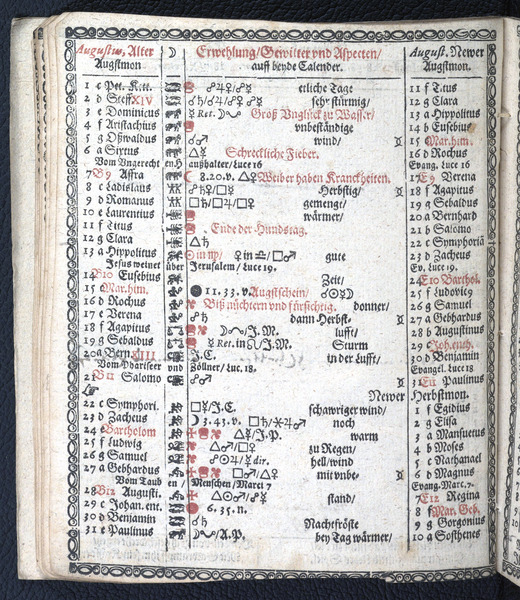 Augustus, Alter Augstmon. ☽ Erwehlung/Gewitter vnd Aspecten/ auff beyde Calender. August. Newer Augstmon.
1 c Pet. Kett. ☍♂♀/☍☿ etliche Tage 11 f Titus
2 d Steff XIV ☌♄/☌♃/☍♀ ☍☿ sehr stürmig/ 12 g Clara
3 e Dominicus ☿ Ret. Groß Vnglück zu Wasser/ 13 a Hippolitus
4 f Aristachius vnbeständige 14 b Eusebius
5 g Oßwaldus ☍♂ wind/ 15 Mar. him.
6 a Sixtus △☿ Schreckliche Fieber. 16 d Rochus
Vom Vngerecht en H außhalter/Luce 16 Evang. Luce 16
7 B9 Affra ☾ 8.20.v. △♀ Weiber haben Kranckheiten. 17 E9 Verena
8 c Ladislaus ☍♄♀/□☿ Herbstig/ 18 f Agapitus
9 d Romanus □♄/□♃/□♀ gemengt/ 19 g Sebaldus
10 e Laurentius wärmer/ 20 a Bernhard
11 f Titus Ende der Hundstag. 21 b Salomo
12 g Clara △♄ 22 c Symphoriā
13 a Hippolitus ☉ in ♍/ ♀ in ♎/□♂ gute 23 d Zacheus
Jesus weinet über Jerusalem/Luce 19. Ev. Luce 19.
14 B10 Eusebius Zeit/ 24 E10 Barthol.
15 Mar. him. ● 11.33.v. Augstschein/ ☌☉☿☽ 25 f Ludovic9
16 d Rochus Biß nüchtern vnd fürsichtig. donner/ 26 g Samuel
17 e Verena ☍♄ dann Herbst- 27 a Gebhardus
18 f Agapitus /J.M. lufft/ 28 b Augustinus
19 g Sebaldus ☿ Ret. in ♌/J.M. Sturm 29 c Joh. enth.
20 a Bern XIII J.C. in der Lufft/ 30 d Benjamin
Vom Phariseer vnd Zöllner/Luc. 18. Evangel. Luce 18
21 B11 Salomo ☍♂ 31 E11 Paulinus
Newer Herbstmon.
22 c Symphori. □☿/J.C. schawriger wind/ 1 f Egidius
23 d Zacheus ☽ 3.43.v. □♄/⚹♂ noch 2 g Elisa
24 e Bartholom △☿/J.P. warm 3 a Mansuetus
25 f Ludwig △♂/□♀ zu Regen/ 4 b Moses
26 g Samuel ☍☉♃/☿ dir. hell/wind 5 c Nathanael
27 a Gebhardus □♂/△♀ mit vnbe- 6 d Magnus
Vom Taub en/ Menschen/Marci 7 Evang. Marc. 7.
28 B12 Augusti. △☉♂/☍☿ stand/ 7 E12 Regina
29 c Johan. ent. 6.35.n. 8 f Mar. Geb.
30 d Benjamin ☌♄ Nachtfröste 9 g Gorgonius
31 e Paulinus /A.P. bey Tag wärmer/ 10 a Sosthenes